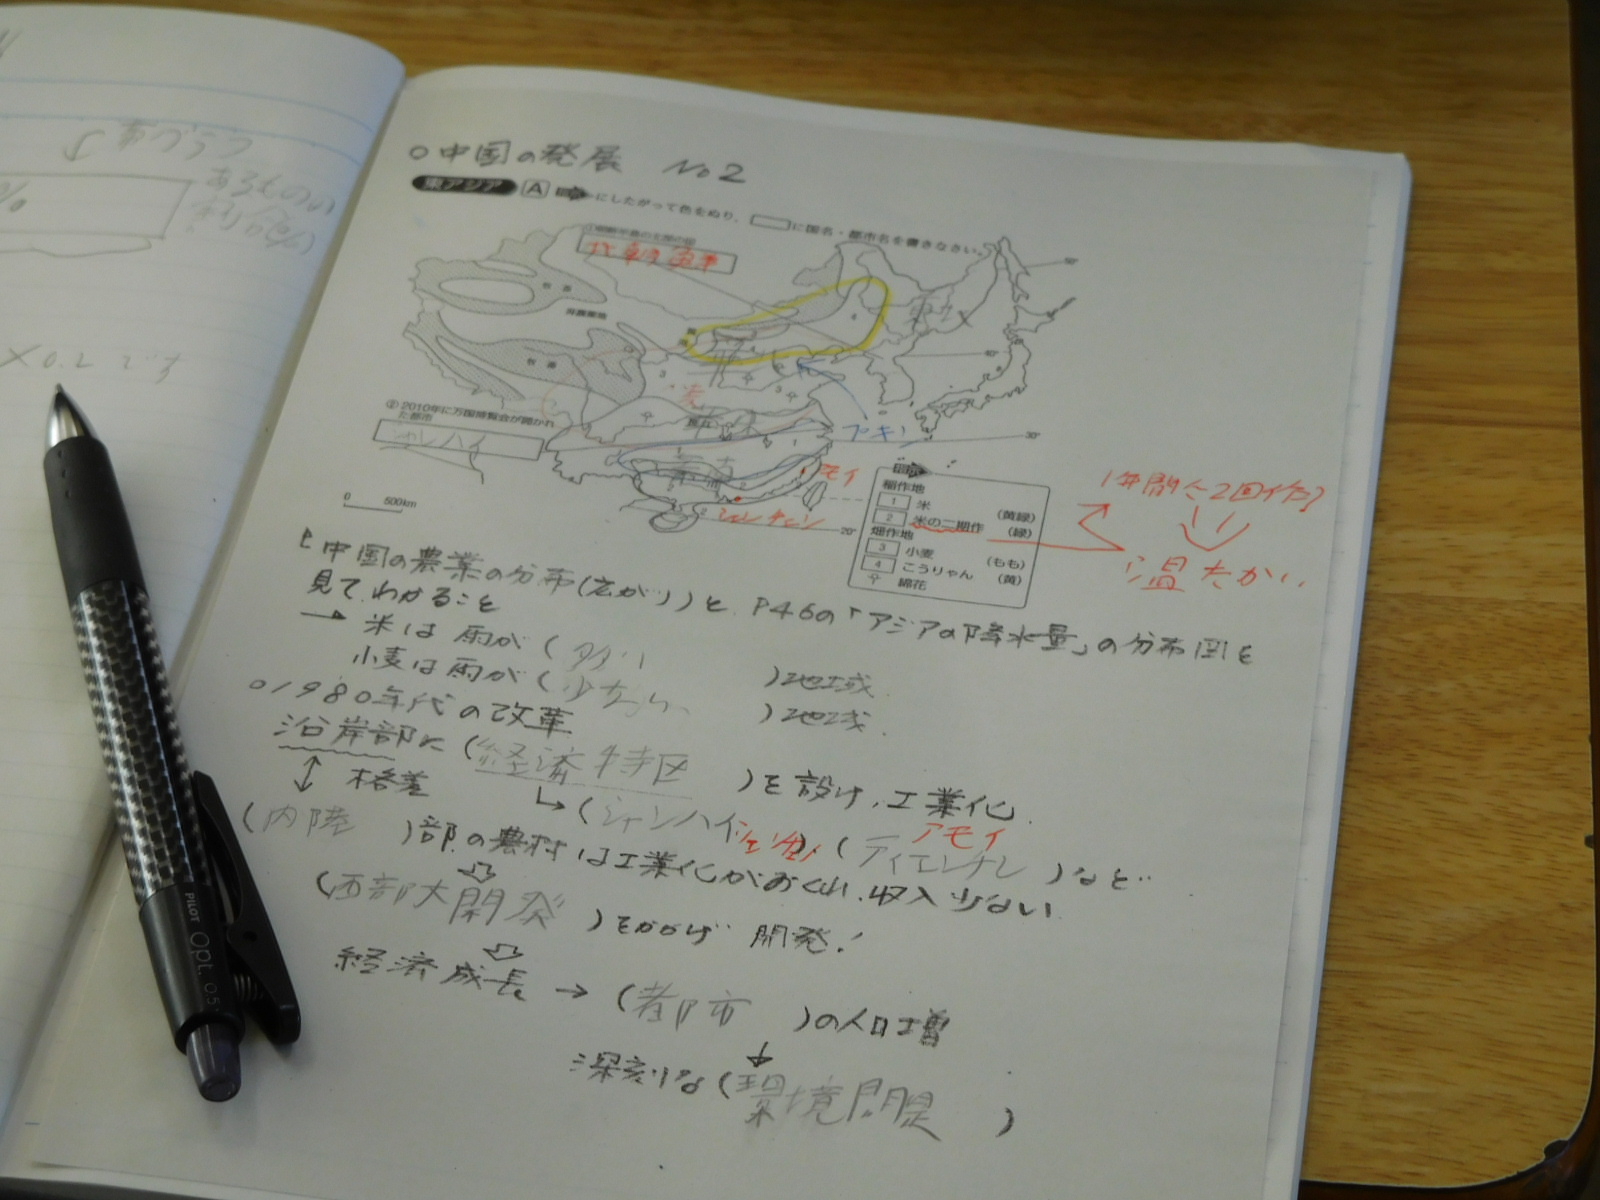 ○中国の発展 No2
東アジア A にしたがって色をぬり、 に国名・都市名を書きなさい。
牧畜
非農業地
牧畜
東北
②2010年に万国博覧会が開かれ
た都市
シャンハイ
ペキン
アモイ
シェンチェン
0 500km
50°
40°
30°
20°
稲作地
1 米 (黄緑)
2 米の二期作 (緑)
畑作地
3 小麦 (もも)
4 こうりゃん (黄)
綿花
1年間に2回作る
温たかい
中国の農業の分布(広がり)と、P46の「アジアの降水量」の分布図を
見て、わかること
→ 米は雨が(多い )地域
小麦は雨が(少ない )地域
○1980年代の改革
沿岸部に(経済特区 )を設け、工業化
↕ 格差 ↳(シャンハイ シェンチェン)(テイエンチン アモイ )など
(内陸 )部の農村は工業化がおくれ、収入少ない
(西部大開発 )をかかげ 開発!
経済成長 → (都市 )の人口増
深刻な(環境問題 )
赤グラフ
%
あるものの
×0.2です
PILOT Opt. 0.5